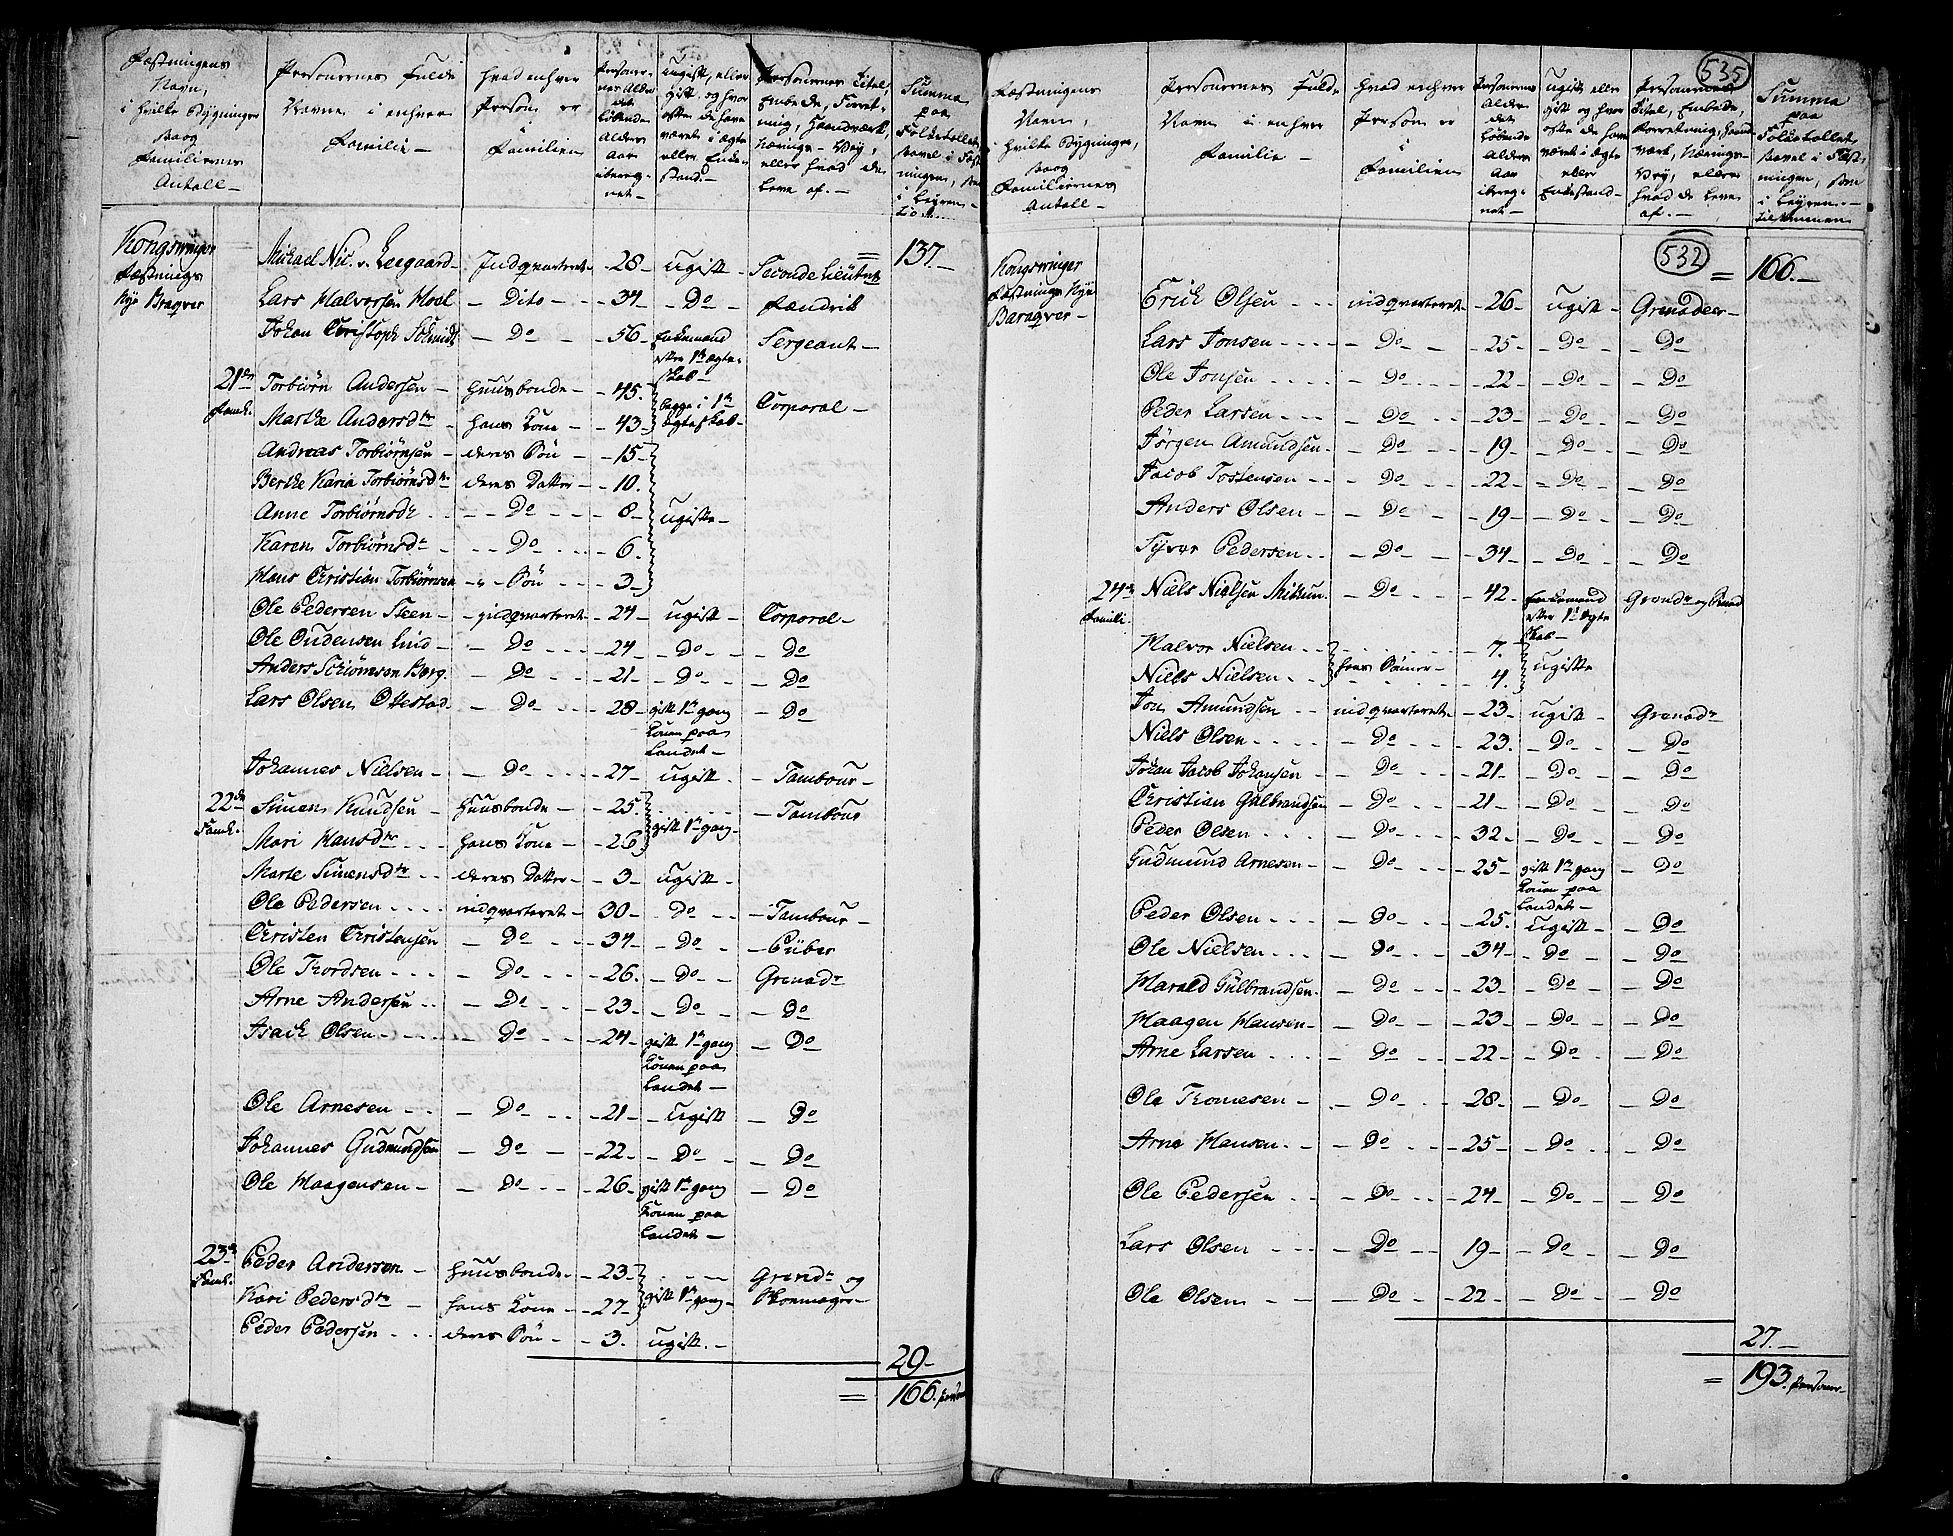 Fæstningens Navn, i hvilke Bygninger, samt Familiernes Antall –
Personernes Fulde Navne i enhver Familie –
hvad enhver Person er i Familien
Personernes Alder det løbende Alders aar iberegnet –
Ugift, eller gift og hvor ofte de have været i ægte eller Enkestand –
Personernes Titel, Embede, Forretning, Haandværk, Nærings-Vey, eller hvad de leve af. –
Summa paa Folketallet
Kongswinger Fæstnings Nye Braqver
= 137. –
Michael Nic. v. Leegaard – Indqvarteret – 28 – ugift – Seconde Lieutnt
Lars Halvorsen Moel – Dito – 34 – Do – Fændrik
Johan Christoph Schmidt – Do – 56 – Enkemand efter 1te Ægteskab – Sergeant –
21de Famil. Torbiørn Andersen – Huusbonde – 45. begge i 1te Ægteskab – Corporal –
Marthe Andersdtr – hans Kone – 43 –
Andreas Torbiørnsen – deres Søn – 15 –
Berthe Karia Torbiørnsdtr – deres Datter – 10.
Anne Torbiørnsdr – Do – 8 – ugifte –
Karen Torbiørnsdr – Do – 6.
Hans Christian Torbiørnsen – Søn – 3 –
Ole Pedersen Steen – indqvarteret – 24 – ugift – Corporal –
Ole Oudensen Lind – Do – 24 – Do – Do
Anders Schiømsen Berg – Do – 21 – Do – Do
Lars Olsen Ottestad – Do – 28 – gift 1te gang Konen paa Landet – Do
Johannes Nielsen – Do – 27 – ugift – Tambour –
22de Famil. Simen Knudsen – Huusbonde – 25. gift 1te gang – Tambour
Mari Hansdtr – hans Kone – 26
Marte Simensdtr – deres Datter – 3 – ugift –
Ole Pedersen – indqvarteret – 30 – Do – Tambour –
Christen Christensen – Do – 34 – Do – Piiber
Ole Thordsen – Do – 26. – Do – Grenadr
Arne Andersen – Do – 23 – Do – Do
Isach Olsen – Do – 24 – gift 1te gang Konen paa Landet – Do
Ole Arnesen – Do – 21 – ugift – Do
Johannes Gudmundsen – Do – 22 – Do – Do
Ole Haagensen – Do – 26 – gift 1te gang Konen paa Landet – Do
23de Famil. Peder Andersen – Huusbonde – 23 – gift 1te gang – Grendr og Skoemager –
Kari Pedersdtr – hans Kone – 27 –
Peder Pedersen – deres Søn – 3. ugift. –
29 –
= 166. personer
535
Fæstningens Navn, i hvilke Bygninger, samt Familiernes Antall –
Personernes Fulde Navne i enhver Familie –
hvad enhver Person er i Familien
Personernes Alder det løbende Alders aar iberegnet –
Ugift eller gift og hvor ofte de have været i ægte eller Enkestand –
Personernes Titel, Embede, Forretning, Haandværk, Nærings-Vey, eller hvad de leve af. –
Summa paa Folketallet saavel i Fæstningen, som i Leyren –
532
Kongswinger Fæstnings Nye Baraqver –
= 166. –
Erich Olsen – indqvarteret – 26 – ugift – Grenadeer –
Lars Jonsen – Do – 25 – Do – Do
Ole Jonsen – Do – 22 – Do – Do
Peder Larsen – Do – 23 – Do – Do
Jørgen Amundsen – Do – 19 – Do – Do
Jacob Tostensen – Do – 22 – Do – Do
Anders Olsen – Do – 19 – Do – Do
Syver Pedersen – Do – 34 – Do – Do
24de Famili Niels Nielsen – Do – 42 – Enkemand efter 1te Ægteskab – Grendr og
Halvor Nielsen – hans Sønner – 7. ugifte
Niels Nielsen – 4.
Jon Amundsen – indqvarteret – 23 – ugift – Grenadr
Niels Olsen – Do – 23. – Do – Do
Johan Jacob Johansen – Do – 21 – Do – Do
Christian Gulbrandsen – Do – 21 – Do – Do
Peder Olsen – Do – 32 – Do – Do
Gudmund Arnesen – Do – 25 – gift 1te gang Konen paa Landet – Do
Peder Olsen – Do – 25. ugift – Do
Ole Nielsen – Do – 34 – Do – Do
Harald Gulbrandsen – Do – 23 – Do – Do
Haagen Hansen – Do – 23 – Do – Do
Arne Larsen – Do – 22 – Do – Do
Ole Thomesen – Do – 28 – Do – Do
Arne Hansen – Do – 25 – Do – Do
Ole Pedersen – Do – 24 – Do – Do
Lars Olsen – Do – 19 – Do – Do
Ole Olsen – Do – 22 – Do – Do
27. –
= 193. personer